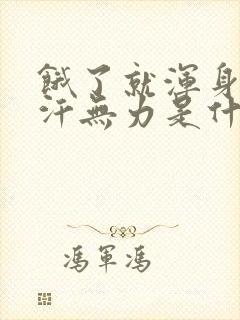 餓了就渾身
汗無力是什
馮軍馮